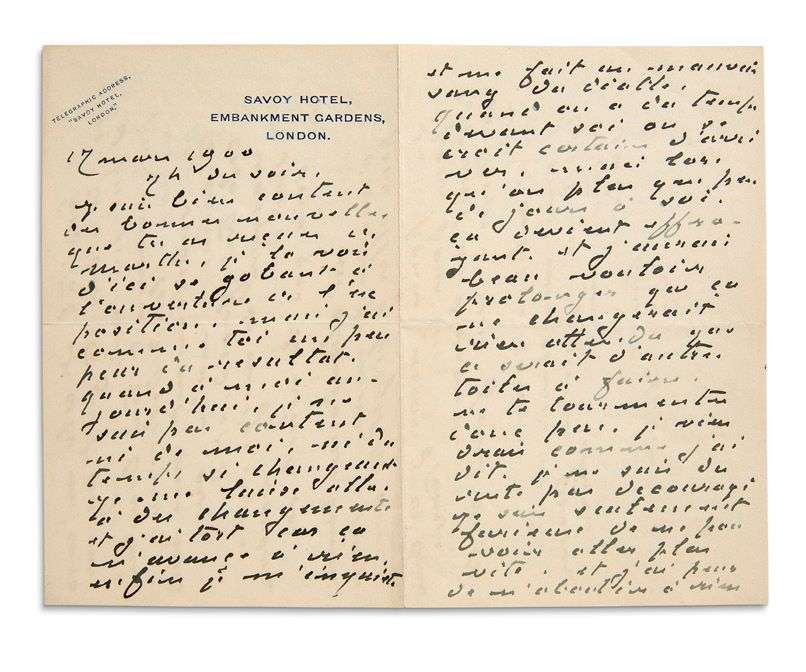 TELEGRAPHIC ADDRESS,
"SAVOY HOTEL,
LONDON."
SAVOY HOTEL,
EMBANKMENT GARDENS,
LONDON.
17 mars 1900
7h du soir.
je suis bien content
des bonnes nouvelles
que tu as reçues de
Marthe, je la vois
d'ici se gobant à
l'ouverture de l'ex
position, mais j'ai
comme toi un peu
peur du résultat.
quand à moi au-
jourd'hui, je ne
suis pas content
ni de moi, ni du
temps si changeant
je me laisse aller
à des changements
et j'ai tort car ça
n'avance à rien,
enfin je m'inquiète
et me fait un mauvais
sang du diable,
quand on a du temps
devant soi on se
croit certain d'arri
ver, mais lors
qu'on plus que peu
de jours à soi,
ça devient effra-
yant. et j'aurai
beau vouloir
prolonger que ça
ne changerait
rien attendu que
ce serait d'autres
toiles à faire.
ne te tourmente
donc pas, je viendrai
comme j'ai
dit. je ne suis du
reste pas découragé
je suis seulement
furieux de ne pou
voir aller plus
vite. et j'ai peur
de n'aboutir à rien